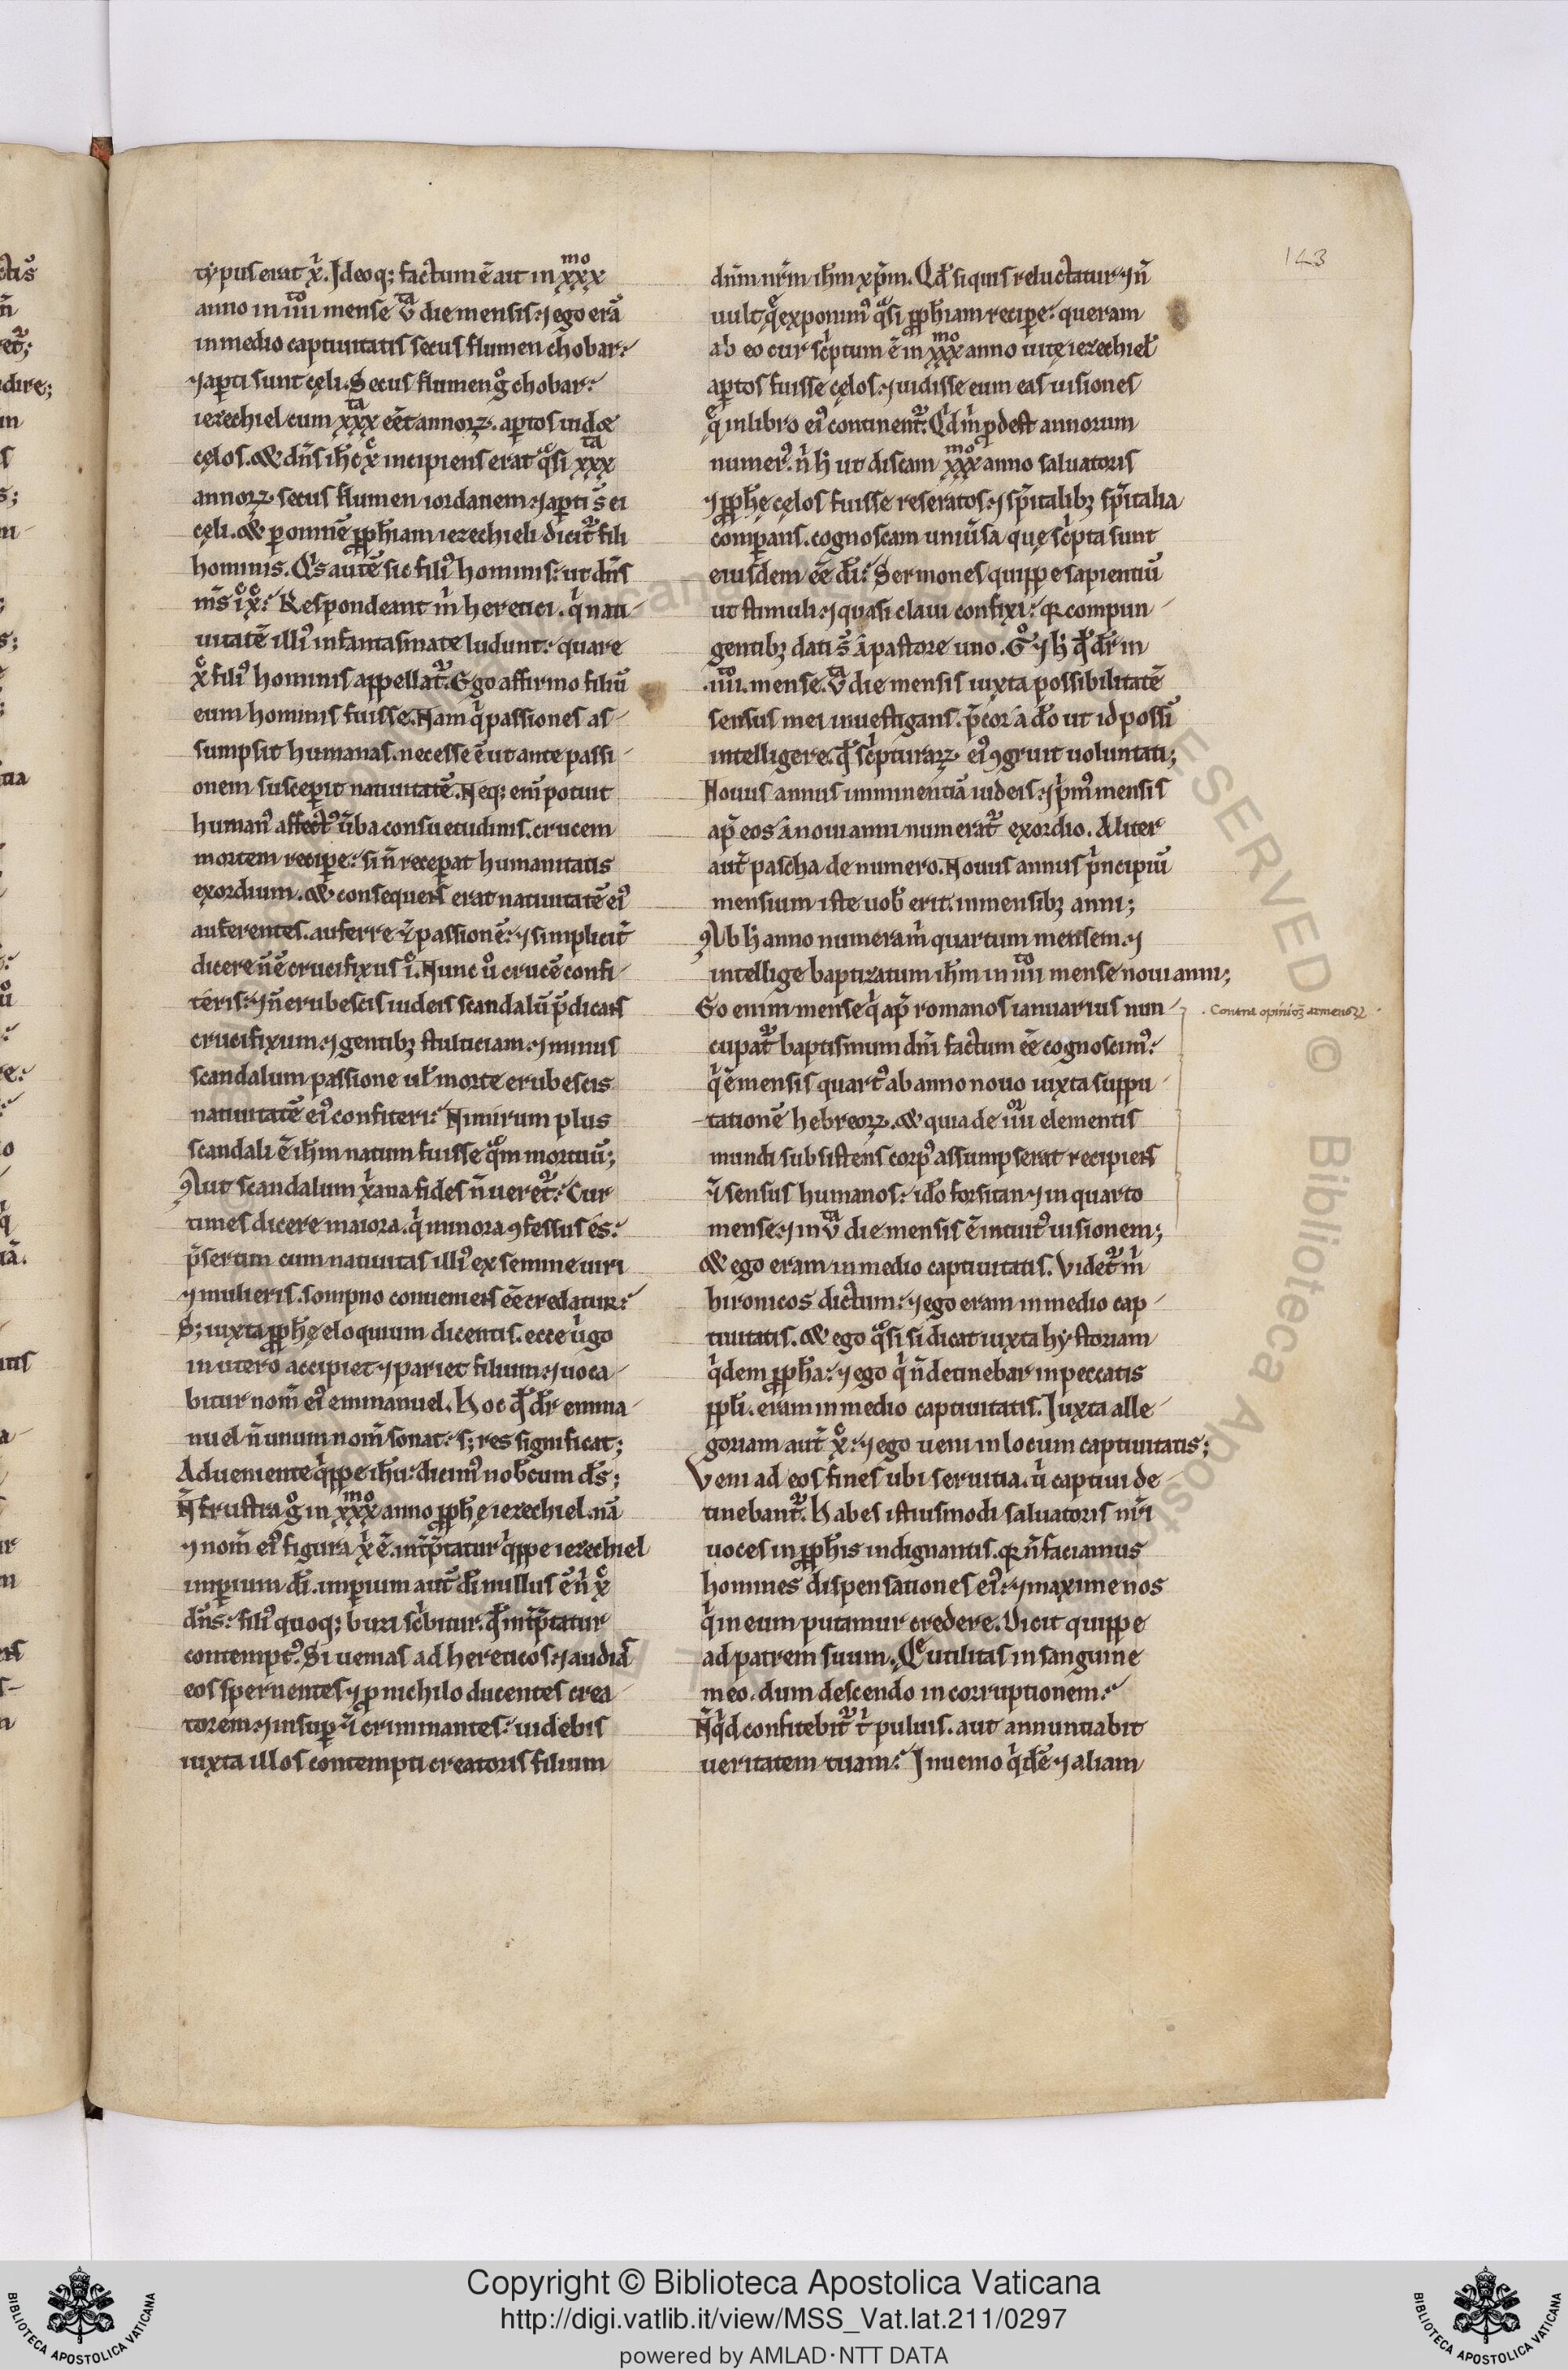 typus erat xp̄i. Ideoq; factum ē aut in xxx mo
anno in iiii to mense v ta die mensis. ⁊ ego erā
in medio captiuitatis secus flumen chobar.
⁊ apti sunt cęli. Secus flumen gͦ chobar.
iezechiel cum xxx ta eēt annoꝝ. aptos uidet
cęlos. & dn̄s ih̄c xc̄ incipiens erat qͣsi xxx ta
annoꝝ secus flumen iordanem. ⁊ apti s̄ ei
cęli. & p omnē pph̄iam iezechieli dicit᷑ fili
hominis. Qͥs autē sic filiꝰ hominis. ut dn̄s
nr̄s ic̄ xc̄. Respondeant m̄ heretici. qͥ nati
uitatē illiꝰ in fantasmate ludunt. quare
xc̄ filiꝰ hominis appellat᷑. Ego affirmo filiū
eum hominis fuisse. Nam qͥ passiones as
sumpsit humanas. necesse ē ut ante passi
onem susceperit natiuitatē. Neq; enī potuit
humanꝰ affectꝰ ūba consuetudinis. crucem
mortem recipe. si n̄ recepat humanitatis
exordium. & consequens erat natiuitatē eiꝰ
auferentes. auferre ⁊ passionē. ⁊ simplicit̄
dicere n̄ ē crucifixus ic̄. Nunc uͦ crucē confi
teris. ⁊ n̄ erubescis iudeis scandalū p̄dicans
crucifixum. ⁊ gentibꝫ stulticiam. ⁊ minus
scandalum passione ul̄ morte erubescis
natiuitatē eiꝰ confiteri. Nimirum plus
scandali ē ih̄m natum fuisse qͣm mortuū;
Aut scandalum xp̄iana fides n̄ ueret᷑. Cur
times dicere maiora. qͥ minora ꝯfessus es.
p̄sertim cum natiuitas illiꝰ ex semine uiri
⁊ mulieris. sompno conueniens eē credatur.
S; iuxta pph̄ę eloquium dicentis. ecce ūgo
in utero accipiet ⁊ pariet filium. ⁊ uoca
bitur nom̄ eiꝰ emmanuel. Hoc qͩ dr̄ emma
nuel n̄ unum nom̄ sonat. s; res significat;
Adueniente qͥppe ih̄u. dicimꝰ nobcum ds̄;
N̄ frustra gͦ in xxx mo anno pph̄ę iezechiel. nā
⁊ nom̄ eiꝰ figura xp̄i ē. int̄p̄tatur qͥppe iezechiel
imperium dī. imperium aut̄ dī nullus ē n̄ xc̄
dn̄s. filiꝰ quoq; buzi sc̄bitur. qͩ int̄p̄tatur
contemptꝰ. Si uenias ad hereticos. ⁊ audias
eos spernentes ⁊ p nichilo ducentes crea
torem. ⁊ insup ⁊ criminantes. uidebis
iuxta illos contempti creatoris filium
143
dn̄m nr̄m ih̄m xp̄m. Qd̄ si quis reluctatur. ⁊ n̄
uult qͤ exponimꝰ qͣsi pph̄iam recipe. queram
ab eo cur sc̄ptum ē in xxx mo anno uitę iezechiel
aptos fuisse cęlos. ⁊ uidisse eum eas uisiones
qͤ in libro eiꝰ continent᷑. Qͥd m̄ pdest annorum
numerꝰ. n̄ h̄ ut discam xxx mo anno saluatoris
⁊ pph̄ę cęlos fuisse reseratos. ⁊ sp̄italibꝫ sp̄italia
compans. cognoscam uniūsa quę sc̄pta sunt
eiusdem eē dī. Sermones quippe sapientiū
ut stimuli. ⁊ quasi claui confixi. qꝛ compun
gentibꝫ dati s̄ a pastore uno. Gͦ ⁊ h̄ qͩ dr̄ in
.iiii to. mense. v ta die mensis iuxta possibilitatē
sensus mei inuestigans. p̄cor a dō ut id possī
intelligere. qͩ sc̄pturaꝝ eiꝰ ꝯgruit uoluntati;
Nouus annus imminentiā iudeis. ⁊ pͥmꝰ mensis
ap̄ eos a noui anni numerat᷑ exordio. Aliter
aut̄ pascha de numero. Nouus annus pͥncipiū
mensium iste uob̄ erit. in mensibꝫ anni;
Ab h̄ anno numeram̄ quartum mensem. ⁊
intellige baptizatum ih̄m in iiii to mense noui anni;
Eo enim mense qͥ ap̄ romanos ianuarius nun
cupat᷑ baptismum dn̄i factum eē cognoscimꝰ.
qͥ ē mensis quartꝰ ab anno nouo iuxta suppu
tationē hebreoꝝ. & quia de iiii or elementis
mundi subsistens corpꝰ assumpserat recipiens
⁊ sensus humanos. idō forsitan ⁊ in quarto
mense. ⁊ in v ta die mensis ē intuitꝰ uisionem;
& ego eram in medio captiuitatis. Videt᷑ m̄
hironicos dictum. ⁊ ego eram in medio cap
tiuitatis. & ego qͣsi si dicat iuxta hystoriam
qͥdem pph̄a. ⁊ ego qͥ n̄ detinebar in peccatis
ppl̄i. eram in medio captiuitatis. Iuxta alle
goriam aut̄ xc̄. ⁊ ego ueni in locum captiuitatis;
Veni ad eos fines ubi seruitia. uͥ captiui de
tinebant᷑. Habes istiusmodi saluatoris nr̄i
uoces in pph̄is indignantis. qꝛ n̄ faciamus
homines dispensationes eiꝰ. ⁊ maxime nos
qͥ in eum putamur credere. Dicit quippe
ad patrem suum. Quę utilitas in sanguine
meo. dum descendo in corruptionem.
N̄qͥd confitebit᷑ t̄ puluis. aut annuntiabit
ueritatem tuam. Inuenio qͥdē ⁊ aliam
. Contra opinioꝫ armenoꝝ .
Copyright © Biblioteca Apostolica Vaticana
http://digi.vatlib.it/view/MSS_Vat.lat.211/0297
powered by AMLAD·NTT DATA
BIBLIOTECA APOSTOLICA VATICANA
BIBLIOTECA APOSTOLICA VATICANA